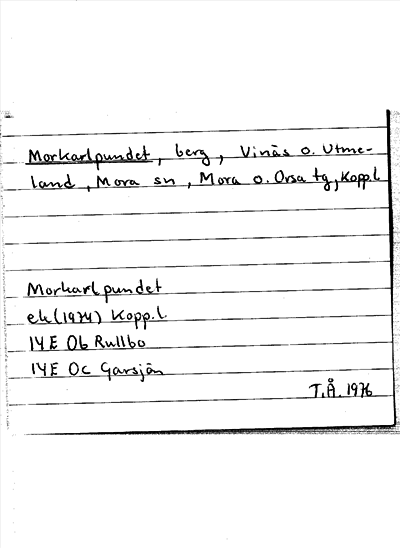 Morkarlpundet, berg, Vinäs o. Utme-
land, Mora sn, Mora o. Orsa tg, Kopp.l
Morkarlpundet
ek (1974) Kopp.l.
14E 0b Rullbo
14E 0c Garsjön
T.Å. 1976